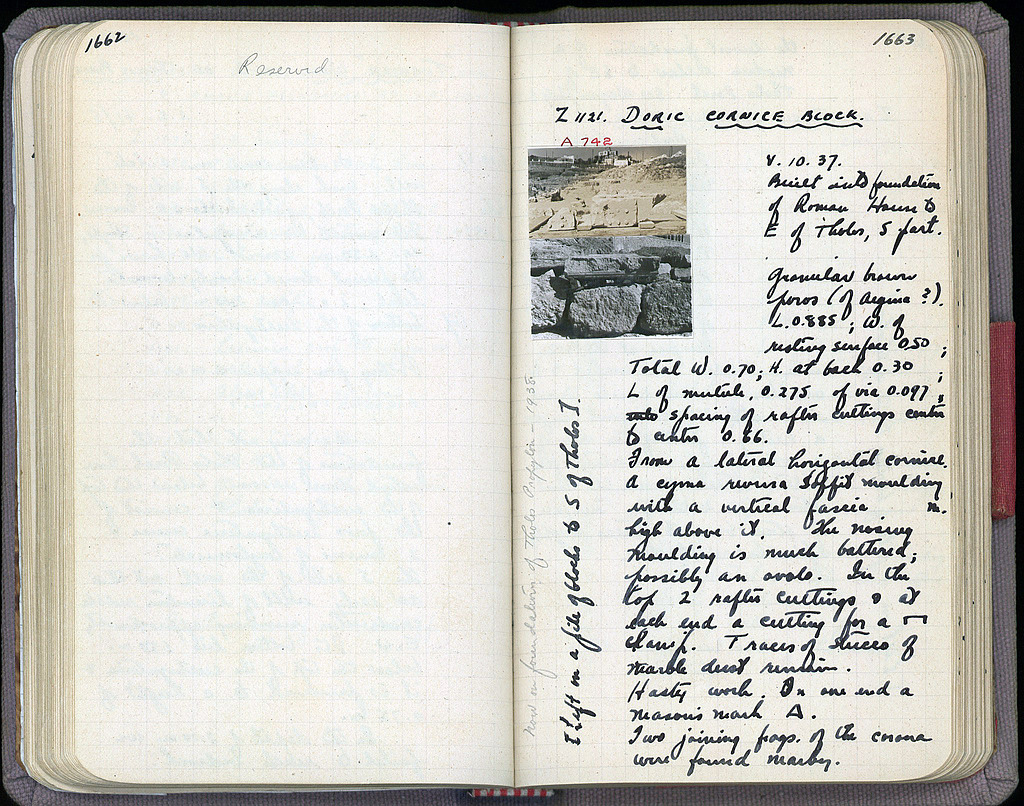 1662
Reserved
1663
Z 1121. DORIC CORNICE BLOCK.
A 742
V. 10. 37.
Built into foundation
of Roman House to
E of Tholos, S part.
Granular brown
poros (of Aegina ?).
L. 0.885 ; W. of
resting surface 0.50 ;
Total W. 0.70 ; H. at back 0.30 ;
L of mutule, 0.275 of via 0.097 ;
spacing of rafter cuttings center
to center 0.66.
From a lateral horizontal cornice.
A cyma reversa soffit moulding
with a vertical fascia m.
high above it. The nosing
moulding is much battered;
possibly an ovolo. In the
top 2 rafter cuttings & at
each end a cutting for a ⊓
clamp. Traces of stucco of
marble dust remain.
Hasty work. On one end a
mason's mark Δ.
Two joining frags. of the corona
were found nearby.
[Left on a pile of blocks to S of Tholos].
Now on foundation of Tholos Propylon – 1938.